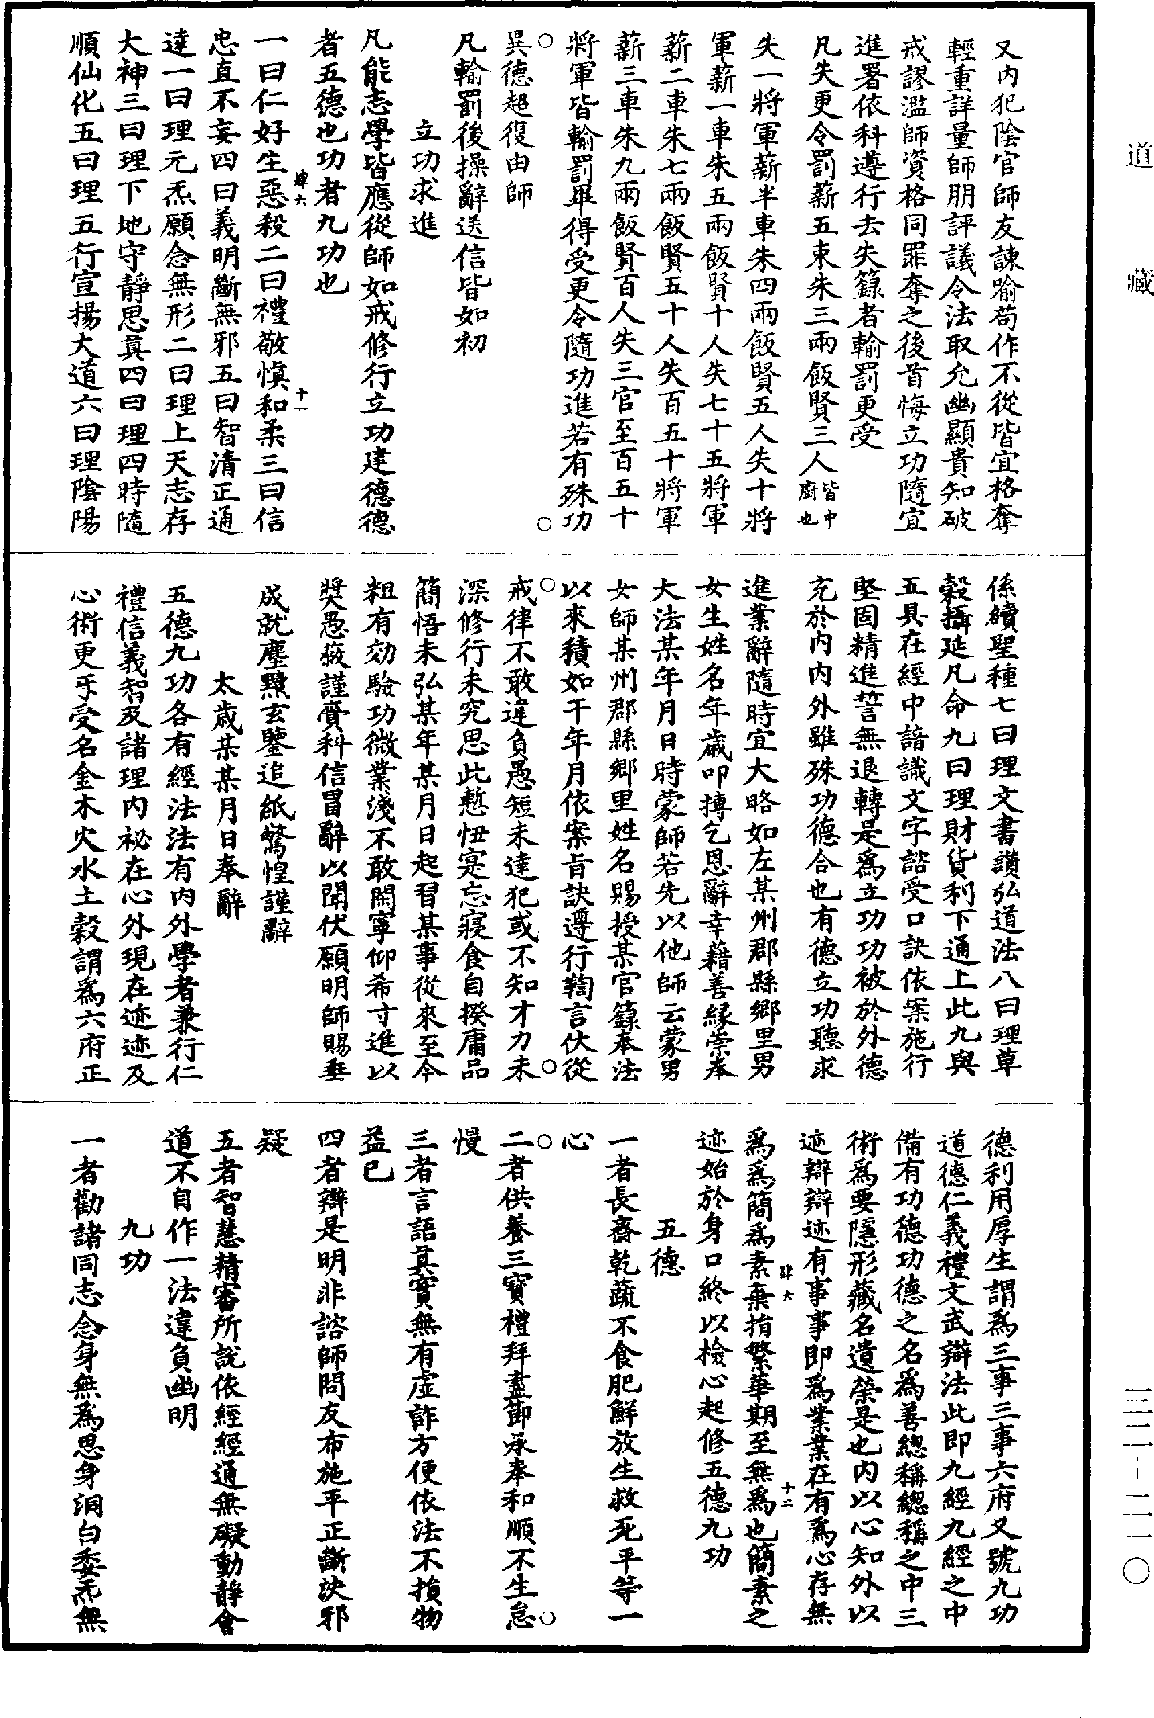 道藏
又內犯陰官師友諫喻苟作不從皆宜格奪
輕重詳量師朋評議令法取允幽顯貴知破
戒謬濫師資格同罪奪之後首悔立功隨宜
進署依科遵行去失籙者輸罰更受
凡失更令罰薪五束朱三兩飯賢三人皆中廚也
失一將軍薪半車朱四兩飯賢五人失十將
軍薪一車朱五兩飯賢十人失七十五將軍
薪二車朱七兩飯賢五十人失百五十將軍
薪三車朱九兩飯賢百人失三官至百五十
將軍皆輸罰畢得受更令隨功進若有殊功
異德超復由師
凡輸罰後操辭送信皆如初
立功求進
凡能志學皆應從師如戒修行立功建德德
者五德也功者九功也
肆六 十一
一曰仁好生惡殺二曰禮敬慎和柔三曰信
忠直不妄四曰義明斷無邪五曰智清正通
達一曰理元炁願念無形二曰理上天志存
大神三曰理下地守靜思真四曰理四時隨
順仙化五曰理五行宣揚大道六曰理陰陽
係續聖種七曰理文書讚弘道法八曰理草
穀攝延凡命九曰理財貨利下通上此九與
五具在經中諳識文字諮受口訣依案施行
堅固精進誓無退轉是為立功功被於外德
充於內內外雖殊功德合也有德立功聽求
進業辭隨時宜大略如左某州郡縣鄉里男
女生姓名年歲叩搏乞恩辭幸藉善緣崇奉
大法某年月日時蒙師若先以他師云蒙男
女師某州郡縣鄉里姓名賜授某官籙奉法
以來積如干年月依案旨訣遵行鞫言伏從
戒律不敢違負愚短未達犯或不知才力未
深修行未究思此慙忸寔忘寢食自揆庸品
簡悟未弘某年某月日起習某事從來至今
粗有効驗功微業淺不敢闕寧仰希寸進以
奬愚疲謹賫科信冒辭以聞伏願明師賜垂
成就塵黷玄鑒追紙驚惶謹辭
太歲某某月日奉辭
五德九功各有經法法有內外學者兼行仁
禮信義智及諸理內祕在心外現在迹迹及
心術更手受名金木火水土穀謂為六府正
德利用厚生謂為三事三事六府又號九功
道德仁義禮文武辯法此即九經九經之中
備有功德功德之名為善總稱總稱之中三
術為要隱形藏名遺榮是也內以心知外以
迹辯辯迹有事事即為業業在有為心存無
為為簡為素棄捐繁華期至無為也簡素之
肆六 十二
迹始於身口終以檢心起修五德九功
五德
一者長齋乾蔬不食肥鮮放生救死平等一
心
二者供養三寶禮拜盡節承奉和順不生怠
慢
三者言語真實無有虛詐方便依法不損物
益己
四者辯是明非諮師問友布施平正斷決邪
疑
五者智慧精審所說依經經通無礙動靜會
道不自作一法違負幽明
九功
一者勸諸同志念身無為思身洞白委炁無
三二-二一〇